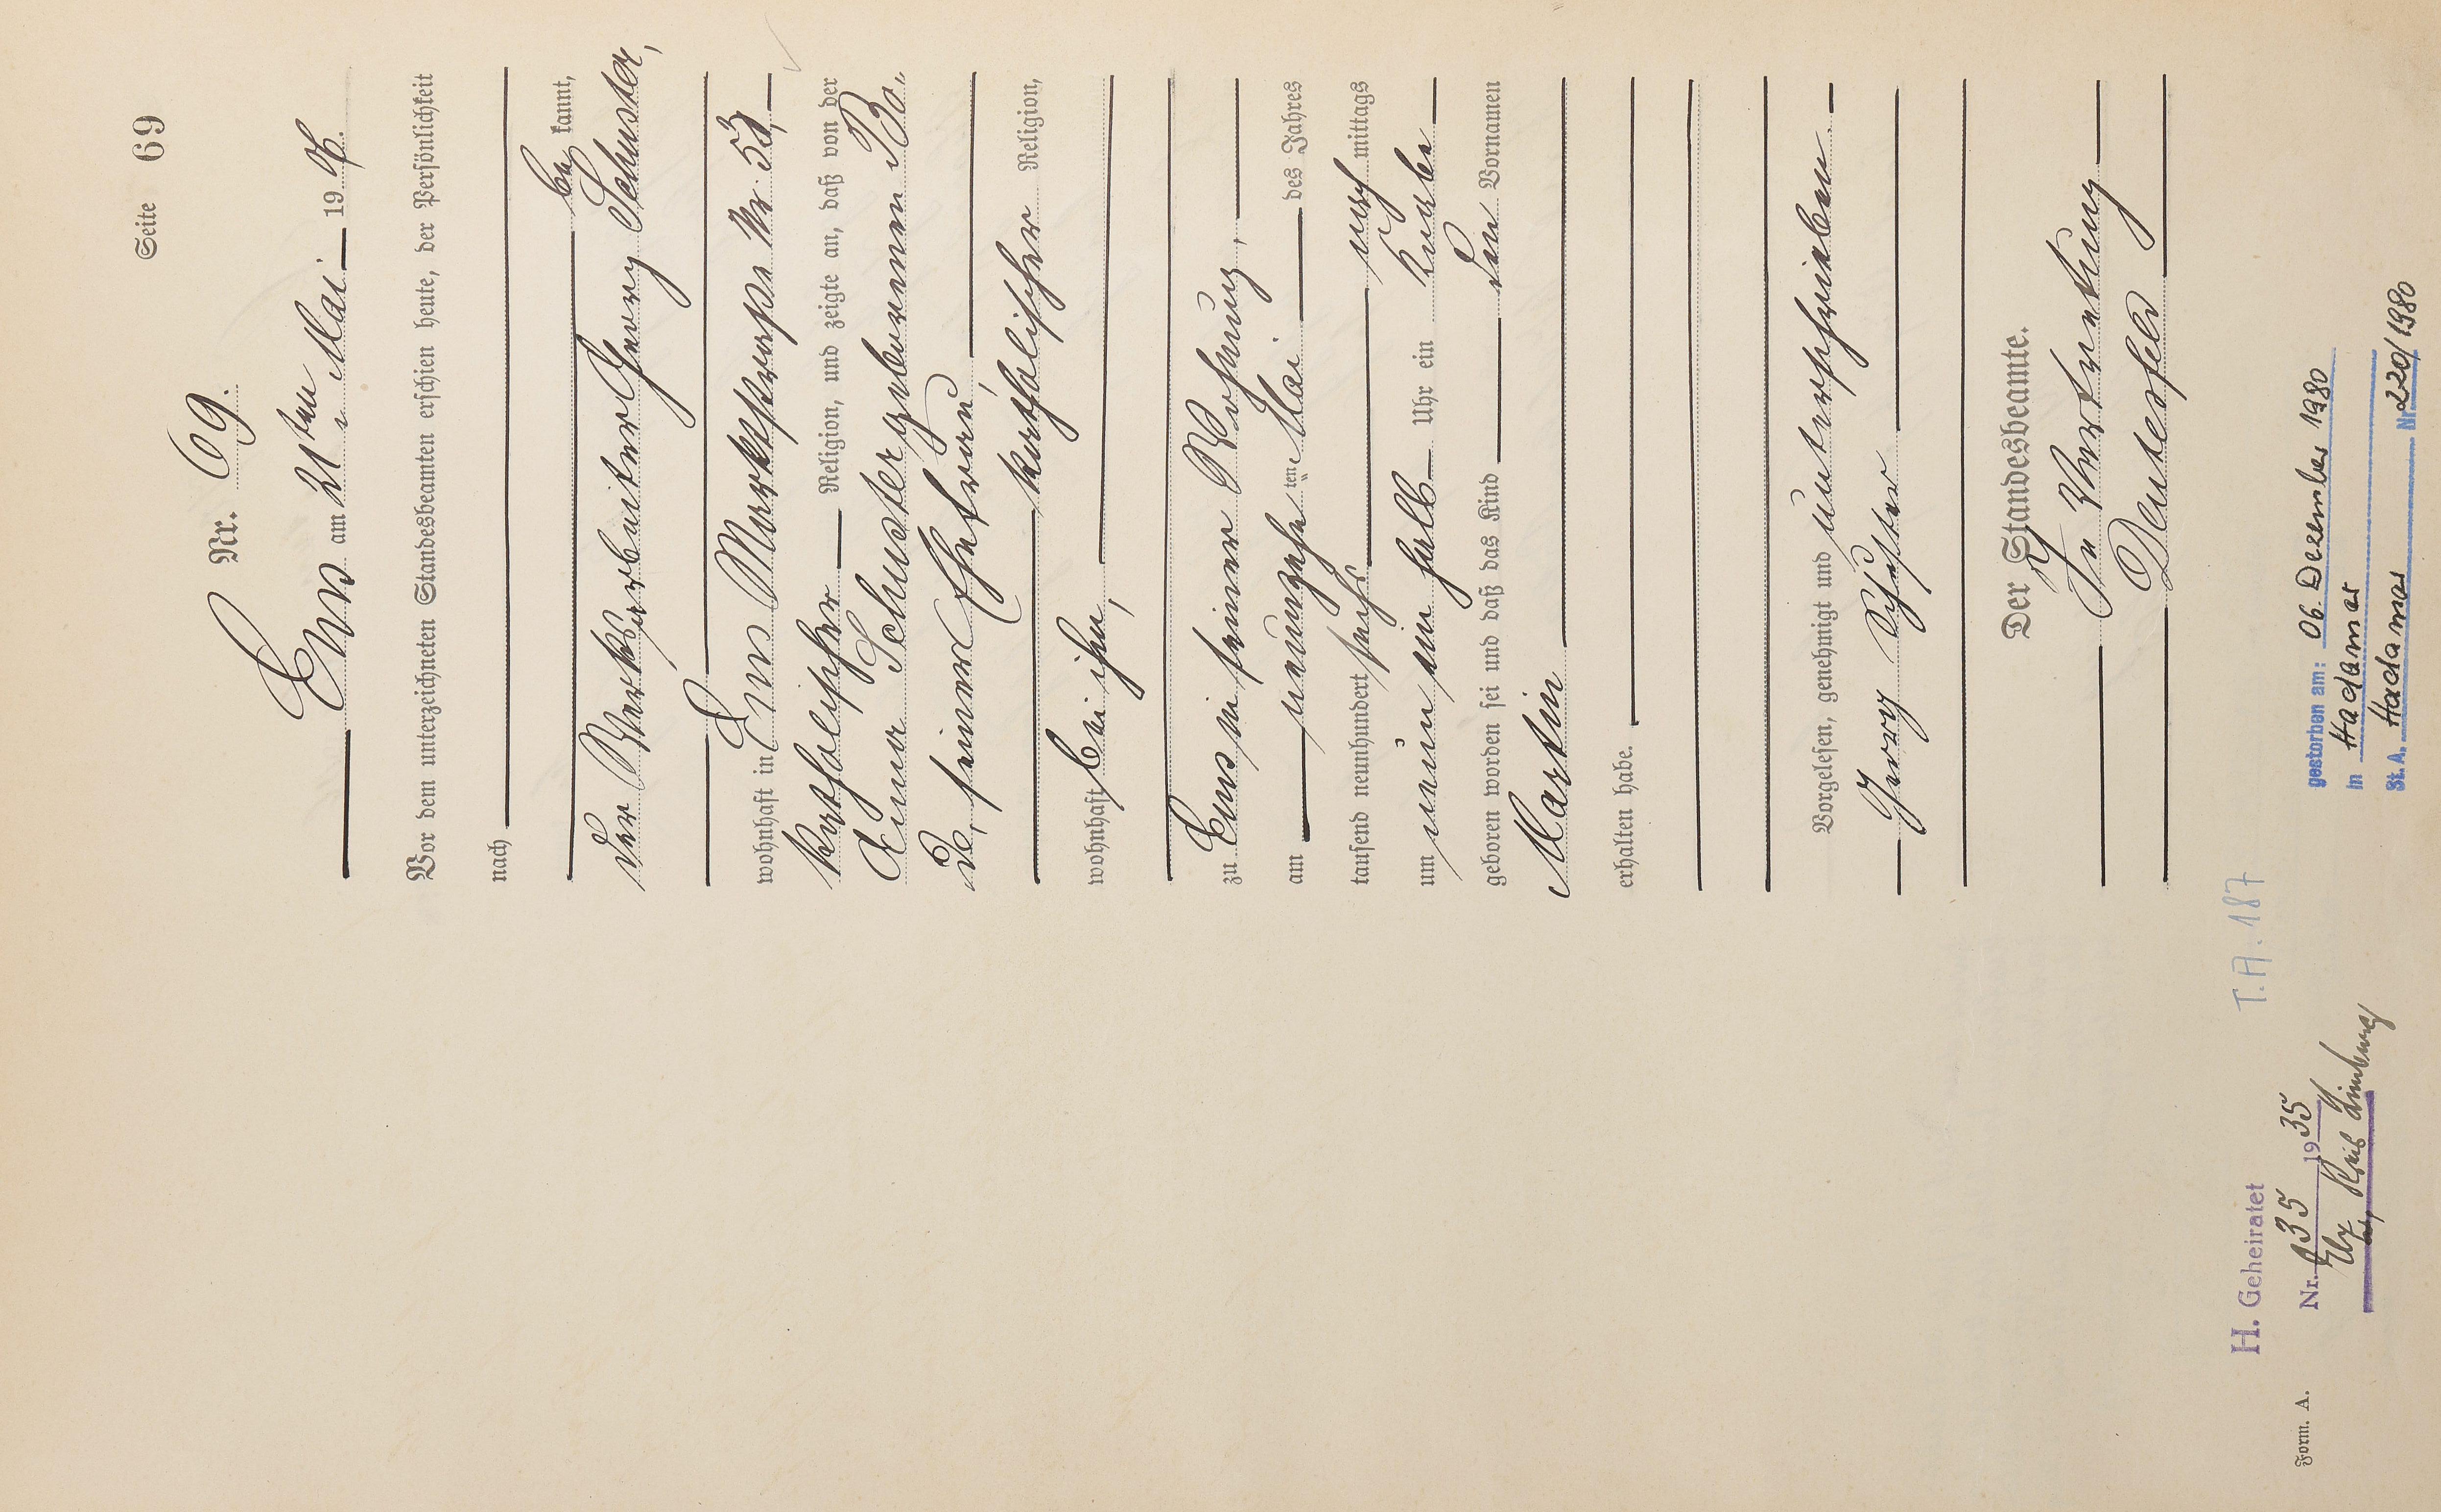 Seite 69
Nr. 69.
Ems am 21ten Mai 19
Vor dem unterzeichneten Standesbeamten erschien heute, der Persönlichkeit
nach
be kannt,
der Werkarbeiter Georg Schuster,
wohnhaft in Ems Marktstraße Nr. 53,
katholischer Religion, und zeigte an, daß von der
Anna Schuster geborenen Bo-
de, seiner Ehefrau,
katholischer Religion,
wohnhaft bei ihm,
zu Ems in seiner Wohnung,
am neunzehnten Mai des Jahres
tausend neunhundert sechs nach mittags
um neun ein halb Uhr ein Knabe
geboren worden sei und daß das Kind den Vornamen
Martin
erhalten habe.
Vorgelesen, genehmigt und unterschrieben.
Georg Schuster
Der Standesbeamte.
In Vertretung
T. A. 187
H. Geheiratet
Nr. 35 1935
Elz, Kreis Limburg
gestorben am: 06. Dezember 1980
in Hadamar
St. A. Hadamar Nr. 220/1980
Form. A.